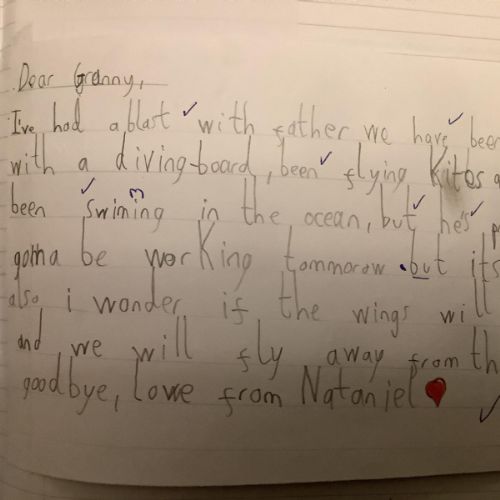 Dear Granny,
I've had a blast with father we have been
with a diving-board, been flying kites
been swiming in the ocean, but he's
gonna be working tommorow. but its
also i wonder if the wings will
and we will fly away from
goodbye, love from Nataniel